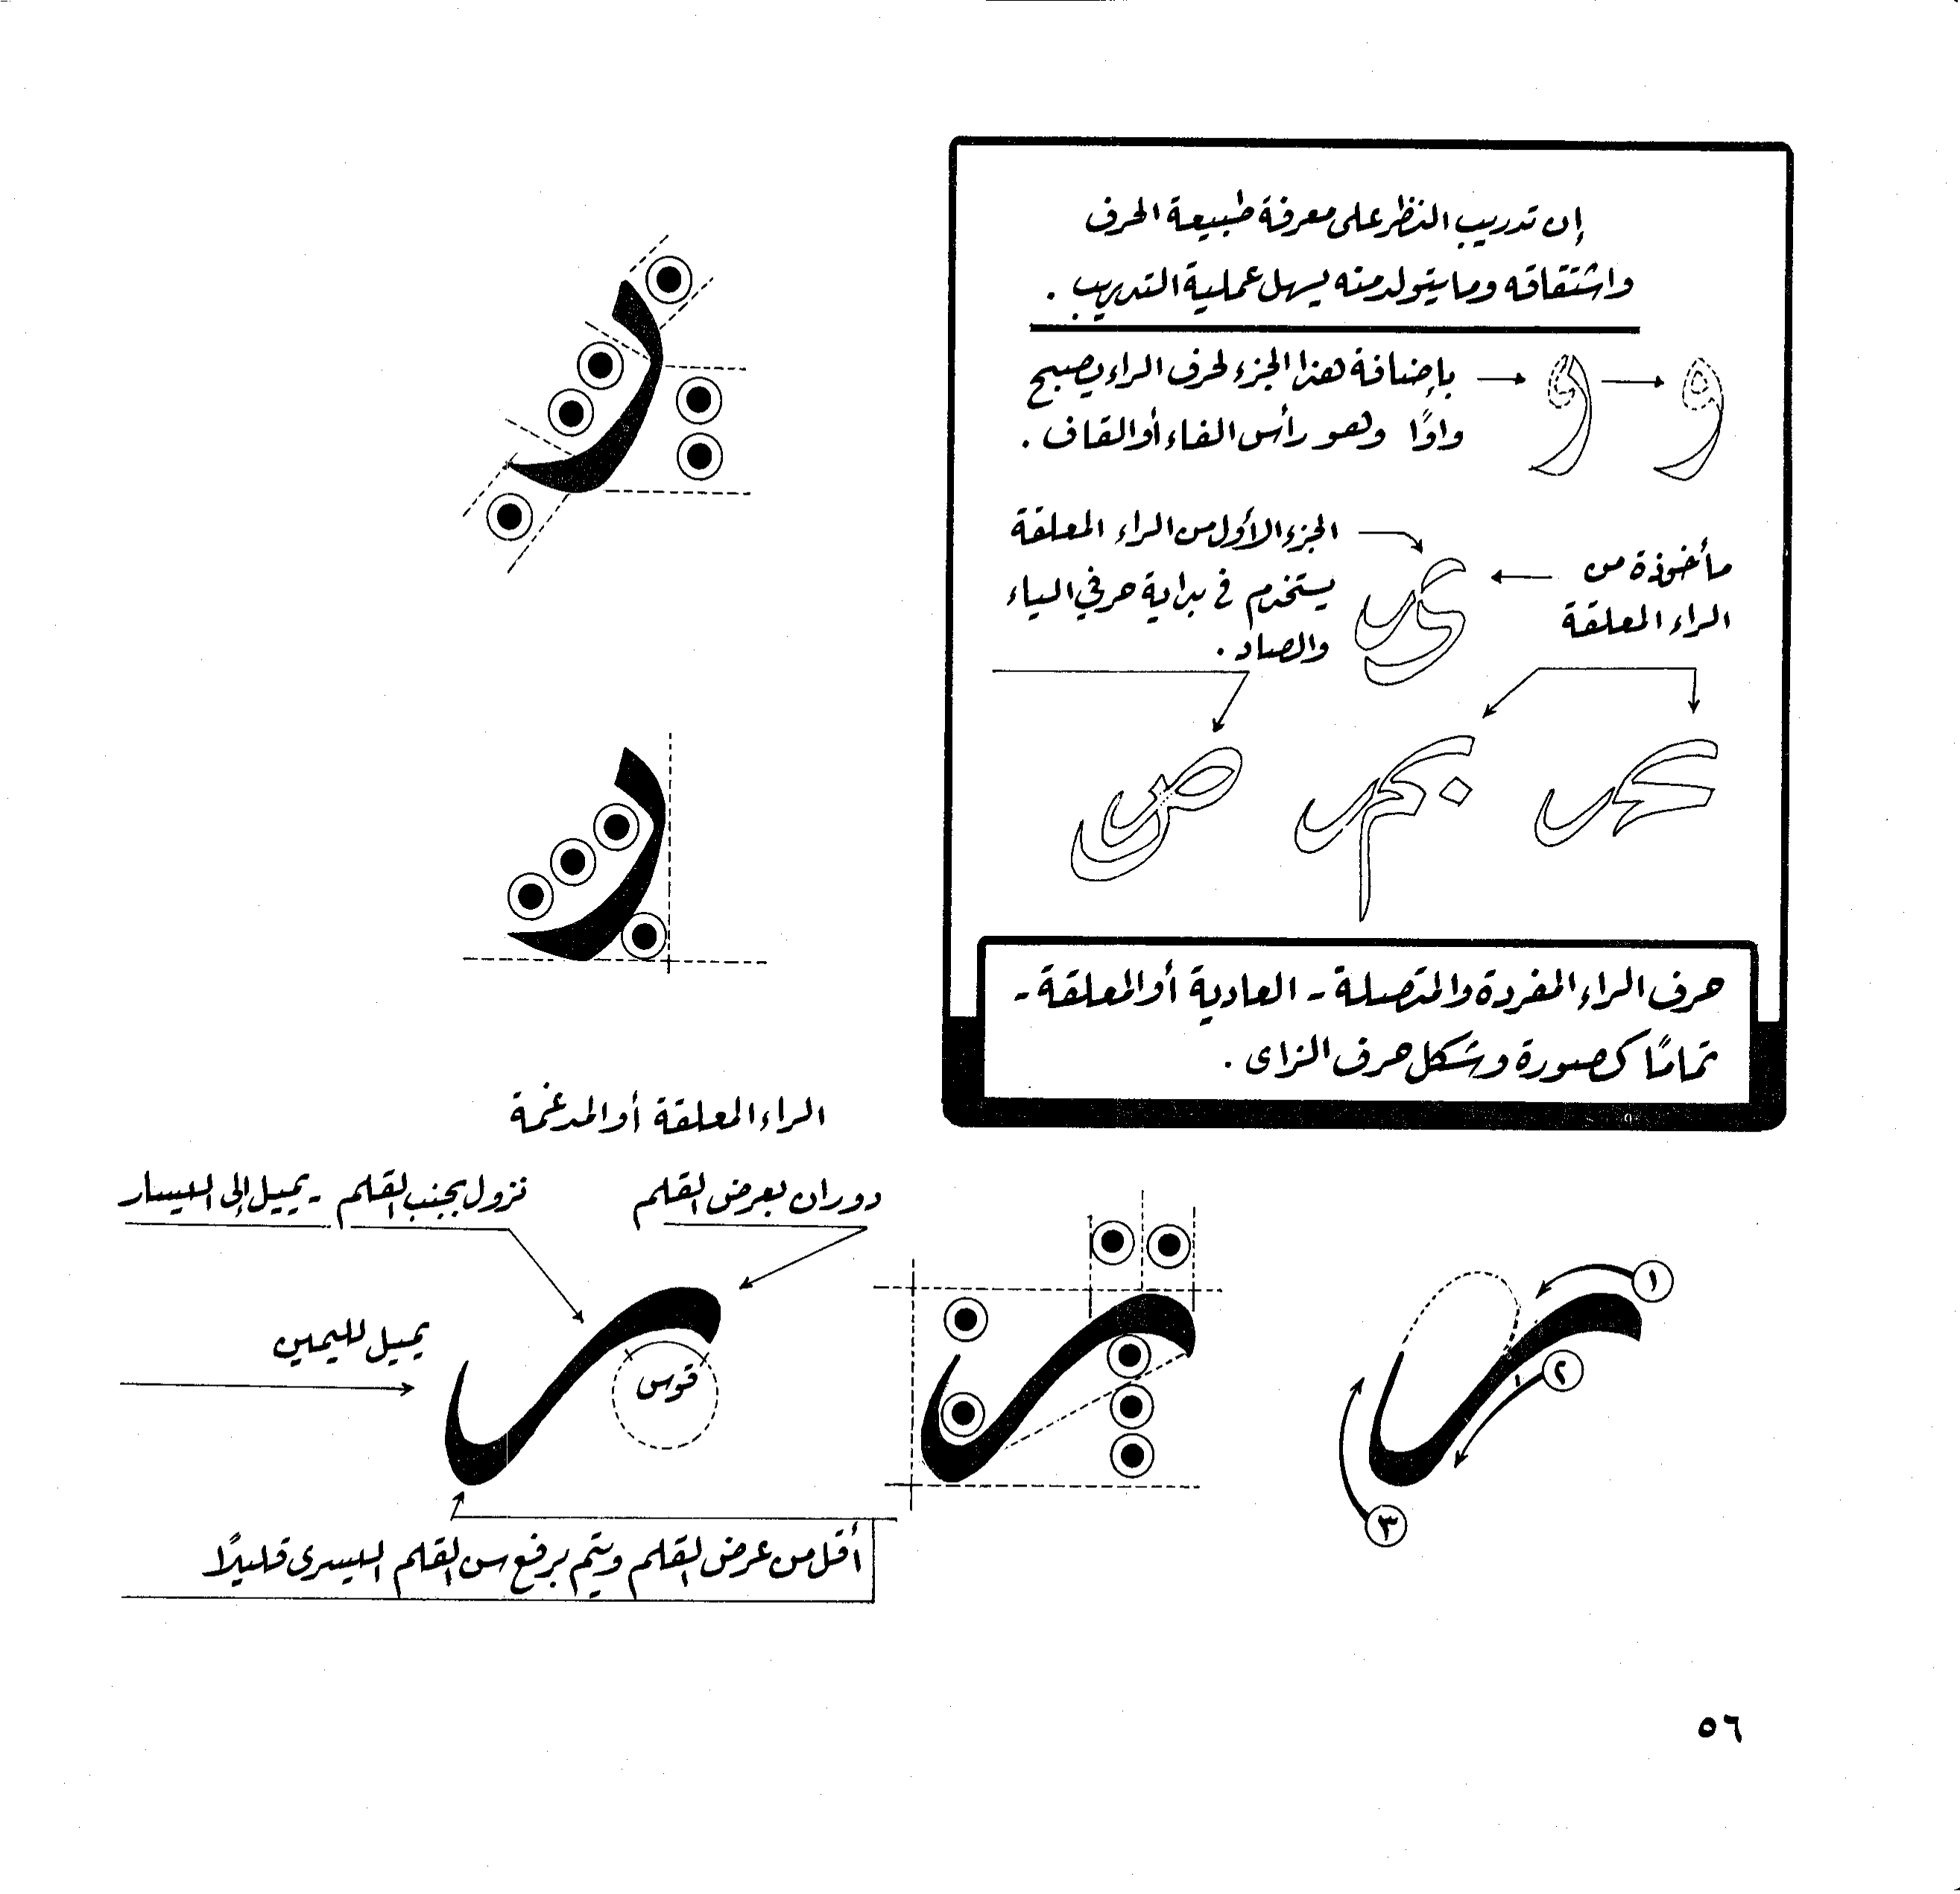 إن تدريب النظر على معرفة طبيعة الحرف
واشتقاقه وما يتولد منه يسهل عملية التدريب .
بإضافة هذا الجزء لحرف الراء يصبح
واوًا وهو رأس الفاء أو القاف .
مأخوذة من
الراء المعلقة
الجزء الأول من الراء المعلقة
يستخدم في بداية حرفي الياء
والصاد .
حرف الراء المفردة والمتصلة - العادية أو المعلقة -
تمامًا كصورة وشكل حرف الزاى .
الراء المعلقة أو المدغمة
دوران بعرض القلم
نزول بجنب القلم - يميل إلى اليسار
يميل لليمين
قوس
١
٢
٣
أقل من عرض القلم ويتم برفع سن القلم اليسرى قليلًا
٥٦